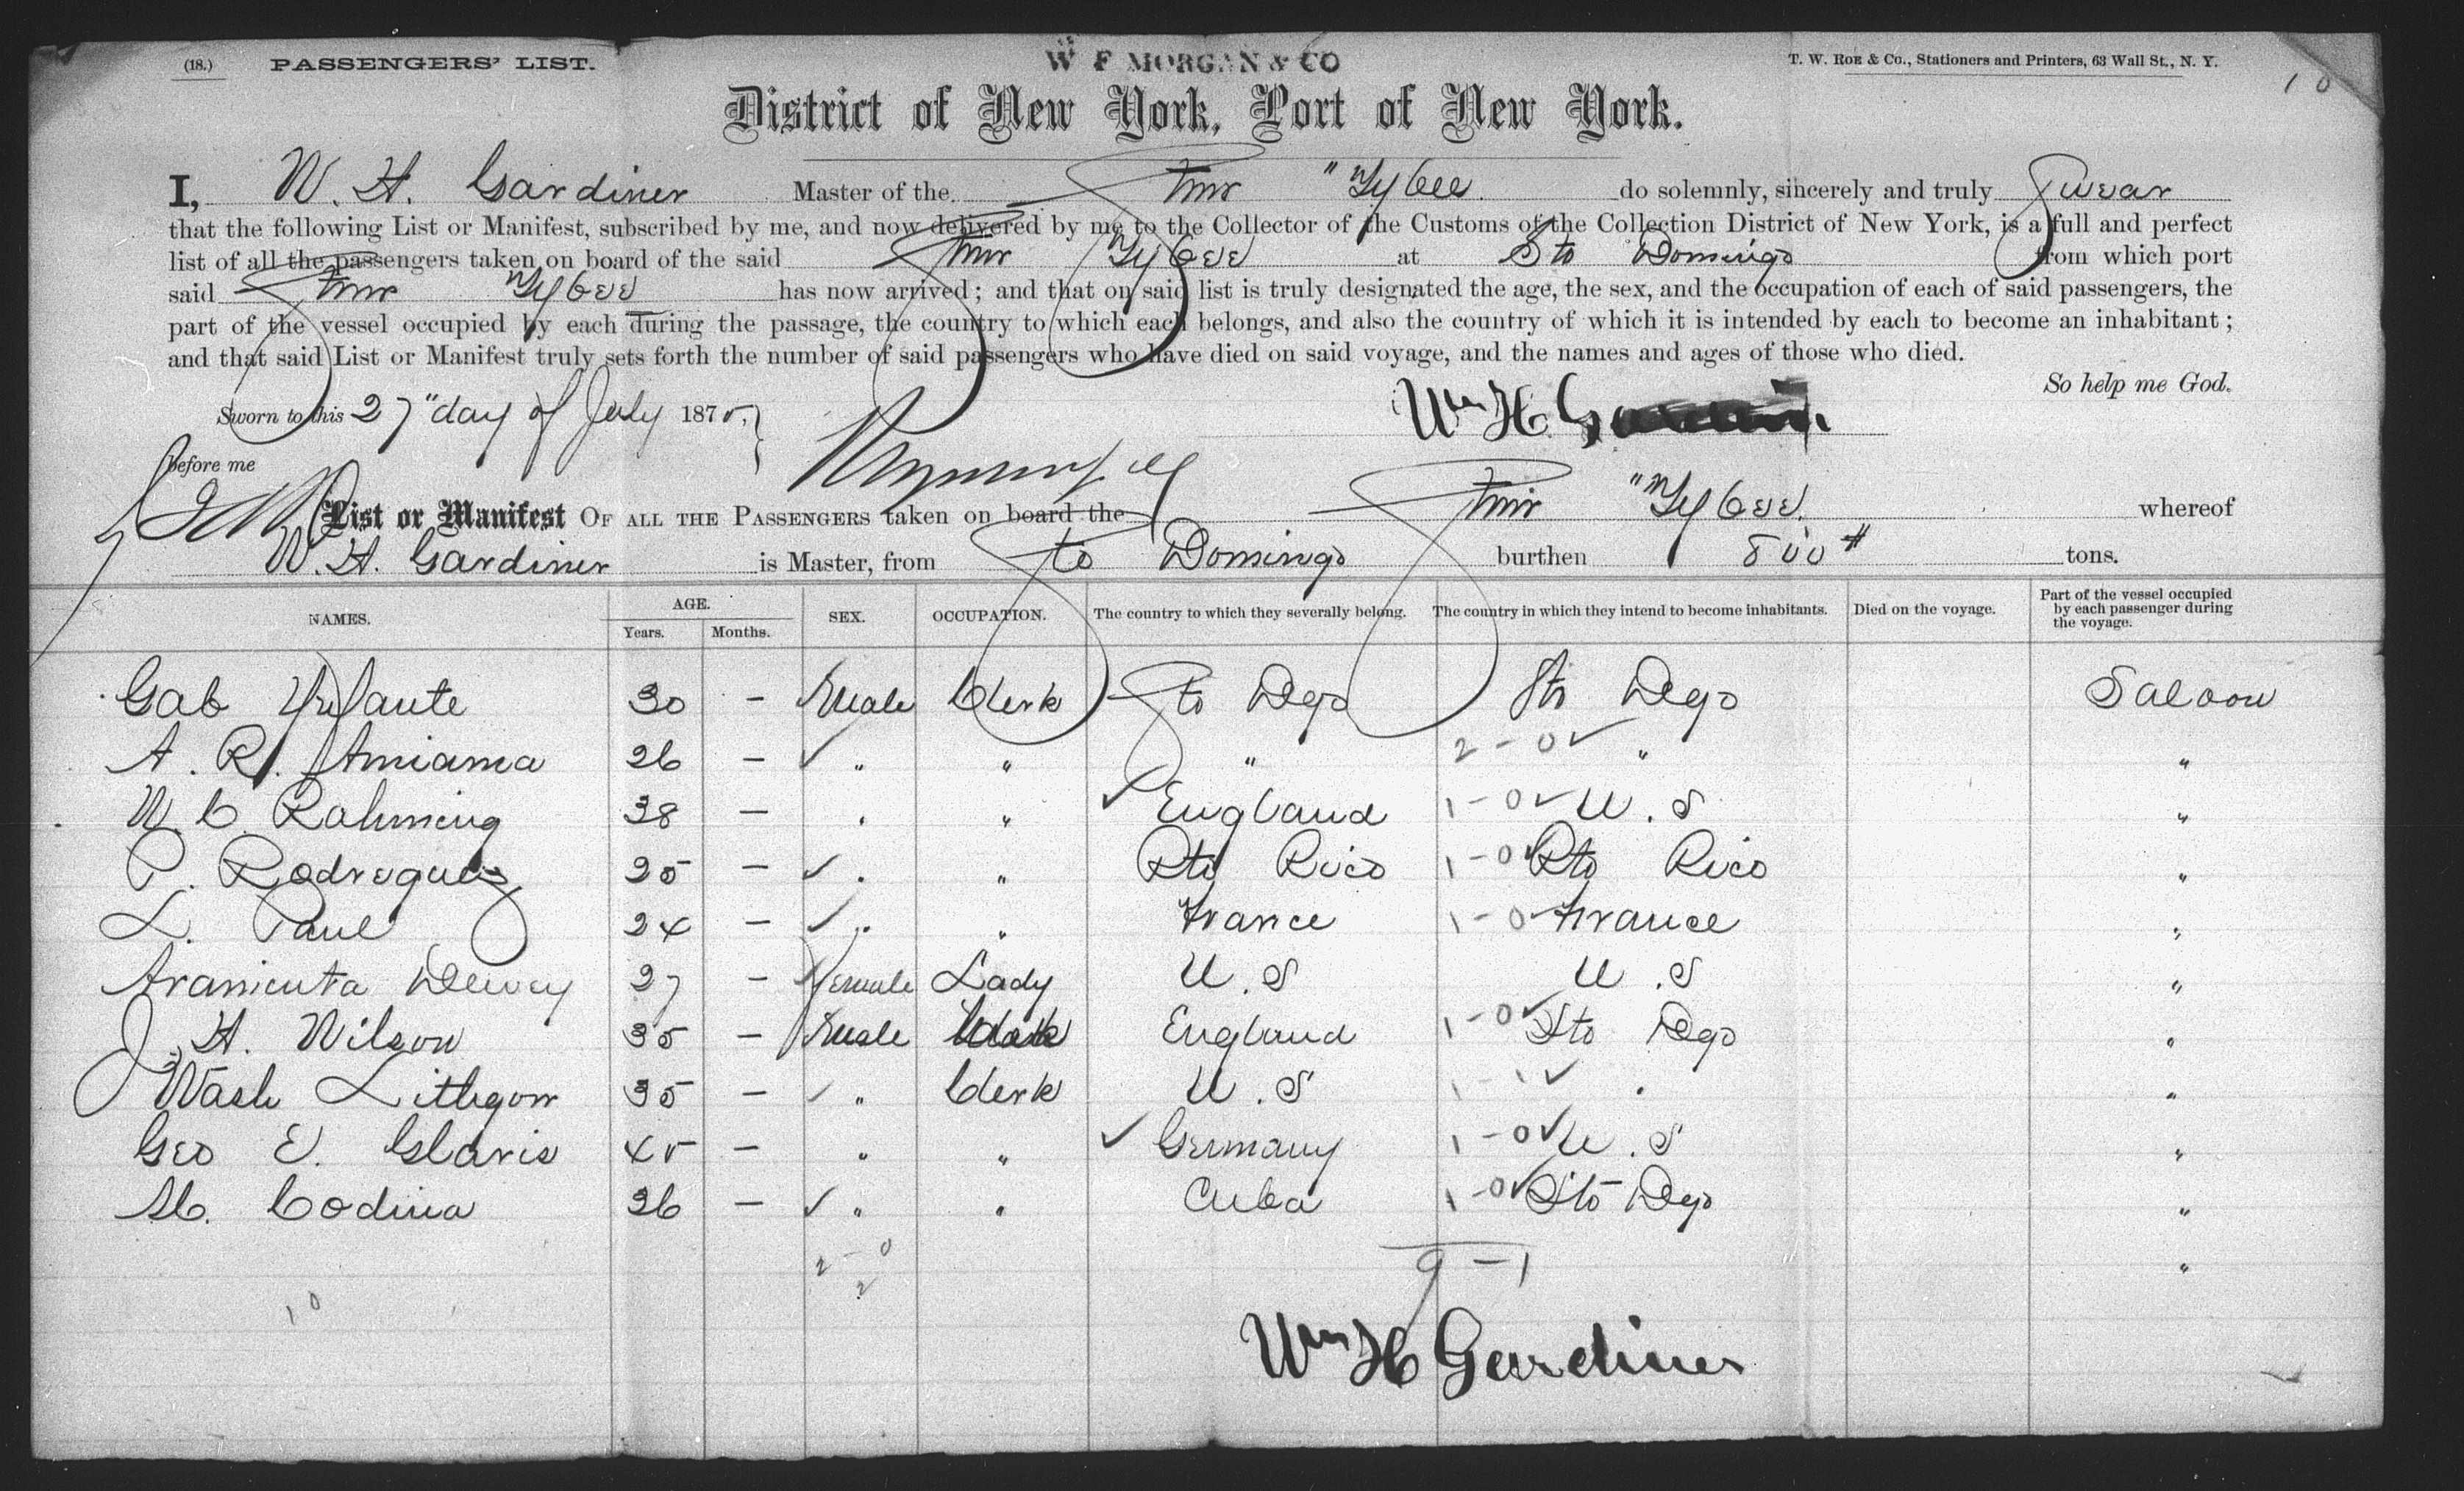 (18.) PASSENGERS' LIST. W F MORGAN & CO T. W. ROE & Co., Stationers and Printers, 63 Wall St., N. Y.
10
District of New York, Port of New York.
I, W. H. Gardiner Master of the Stmr "Tybee do solemnly, sincerely and truly Swear
that the following List or Manifest, subscribed by me, and now delivered by me to the Collector of the Customs of the Collection District of New York, is a full and perfect
list of all the passengers taken on board of the said Stmr Tybee at Sto Domingo from which port
said Stmr Tybee has now arrived; and that on said list is truly designated the age, the sex, and the occupation of each of said passengers, the
part of the vessel occupied by each during the passage, the country to which each belongs, and also the country of which it is intended by each to become an inhabitant;
and that said List or Manifest truly sets forth the number of said passengers who have died on said voyage, and the names and ages of those who died.
So help me God.
Sworn to this 27" day of July 1875, Wm H. Gardiner
before me
List or Manifest OF ALL THE PASSENGERS taken on board the Stmr "Tybee. whereof
W. H. Gardiner is Master, from Sto Domingo burthen 800 tons.
NAMES. AGE. Years. Months. SEX. OCCUPATION. The country to which they severally belong. The country in which they intend to become inhabitants. Died on the voyage. Part of the vessel occupied by each passenger during the voyage.
Gab Ynfante 30 - Male Clerk Sto Dgo Sto Dgo Saloon
A. R. Amiama 26 - ✓ " " " 2-0 ✓ " "
W. C. Rahming 38 - " " ✓ England 1-0 ✓ U.S "
P. Rodreguez 25 - ✓ " " Pto Rico 1-0 ✓ Pto Rico "
L. Paul 24 - ✓ " " France 1-0 France "
Dewey 27 - Female Lady U.S U.S "
J. H. Wilson 35 - Male England 1-0 ✓ Sto Dgo "
Wash Lithgow 35 - ✓ " Clerk U.S 1-1 ✓ " "
Geo E. Glavis 45 - " " ✓ Germany 1-0 ✓ U.S "
M. Codina 26 - ✓ " " Cuba 1-0 ✓ Sto Dgo "
2-0 9-1 "
2
10
Wm H Gardiner